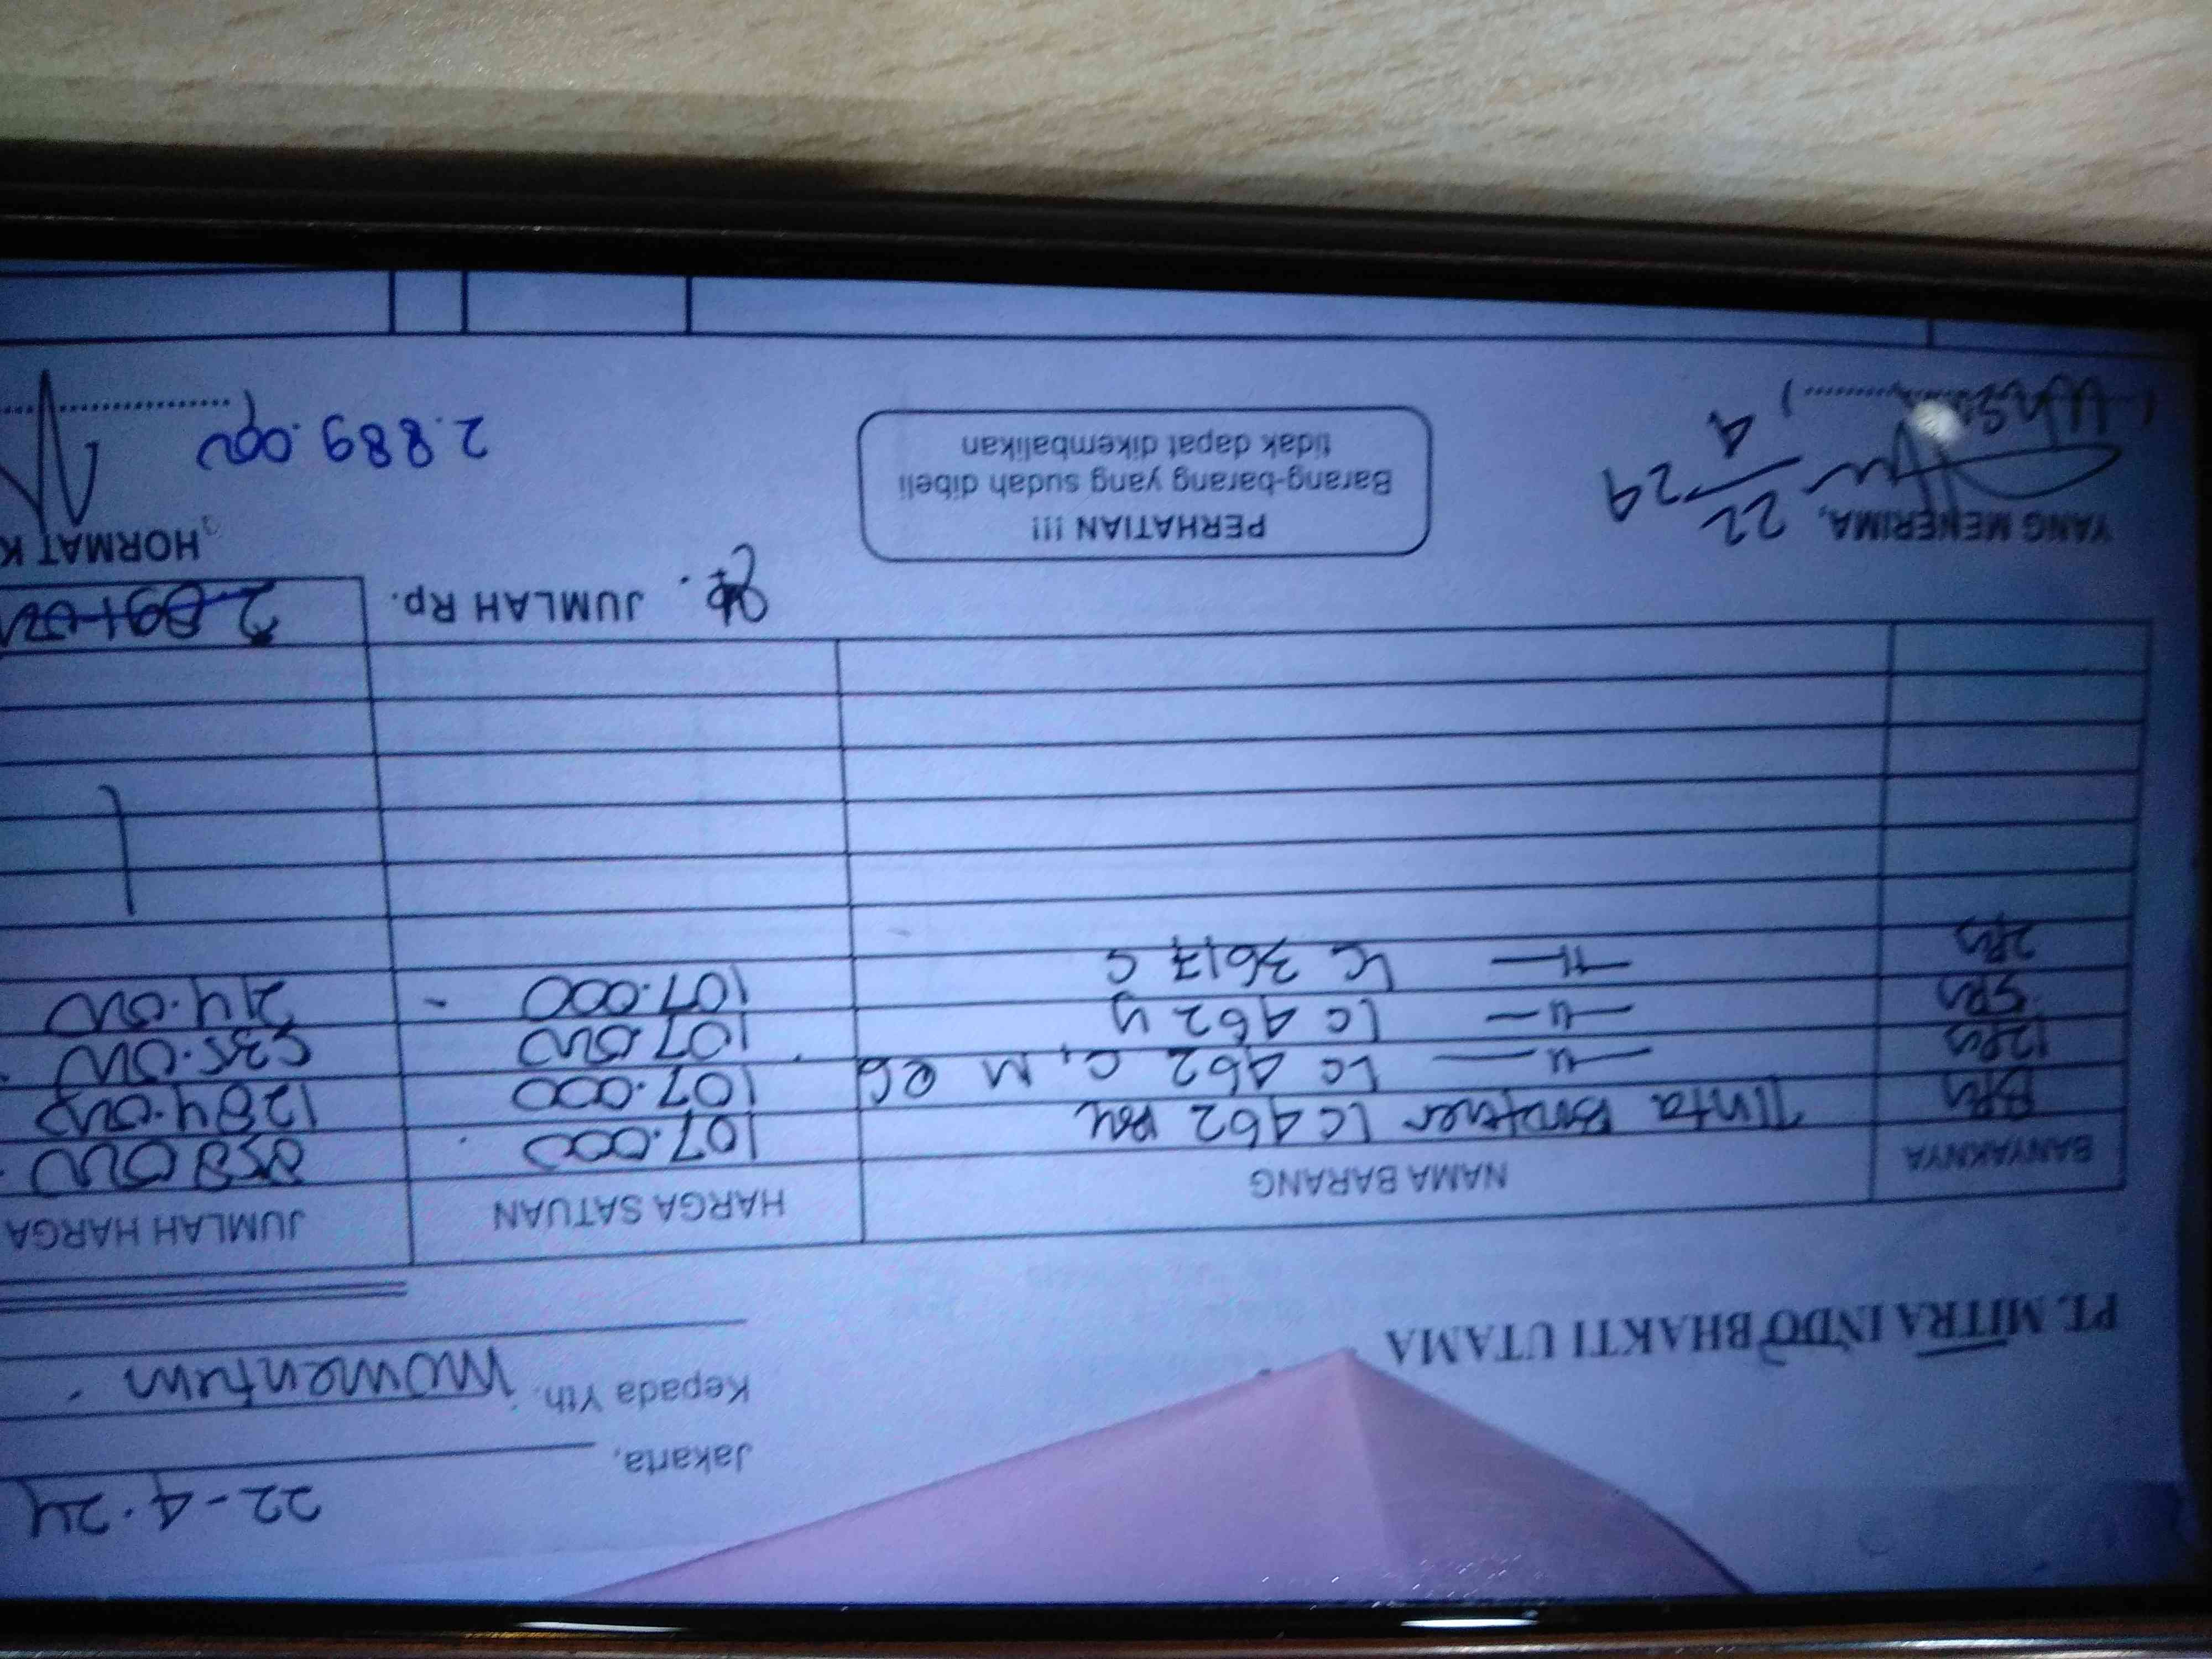 22-4-24
Jakarta,
Kepada Yth. Momentum
PT. MITRA INDO BHAKTI UTAMA
BANYAKNYA NAMA BARANG HARGA SATUAN JUMLAH HARGA
8 Pcs Tinta Brother LC 462 107.000 858.000
12 Pcs —〃— LC 462 C, M @6 107.000 1284.000
5 Pcs —〃— LC 462 Y 107.000 535.000
2 Pcs —〃— LC 3617 C 107.000 214.000
JUMLAH Rp. 2.891.000
YANG MENERIMA, 22/4 24
PERHATIAN !!!
Barang-barang yang sudah dibeli
tidak dapat dikembalikan
HORMAT K
2.889.000